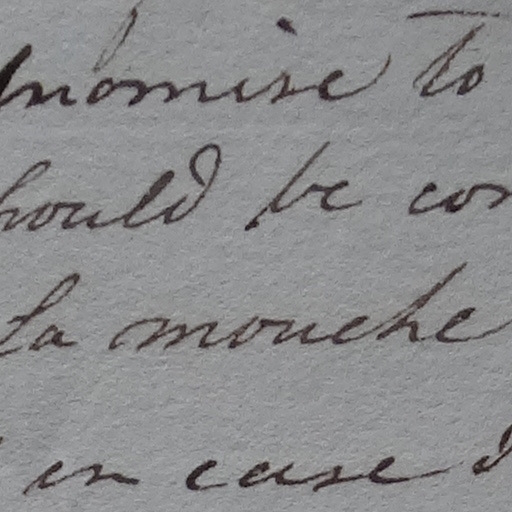 promise to
should be con
la mouche
in case